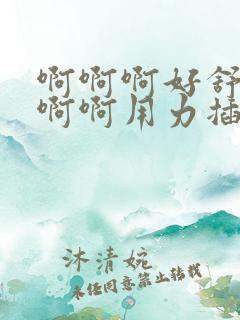 啊啊啊好舒
啊啊用力插
沐清婉
未经同意禁止转载